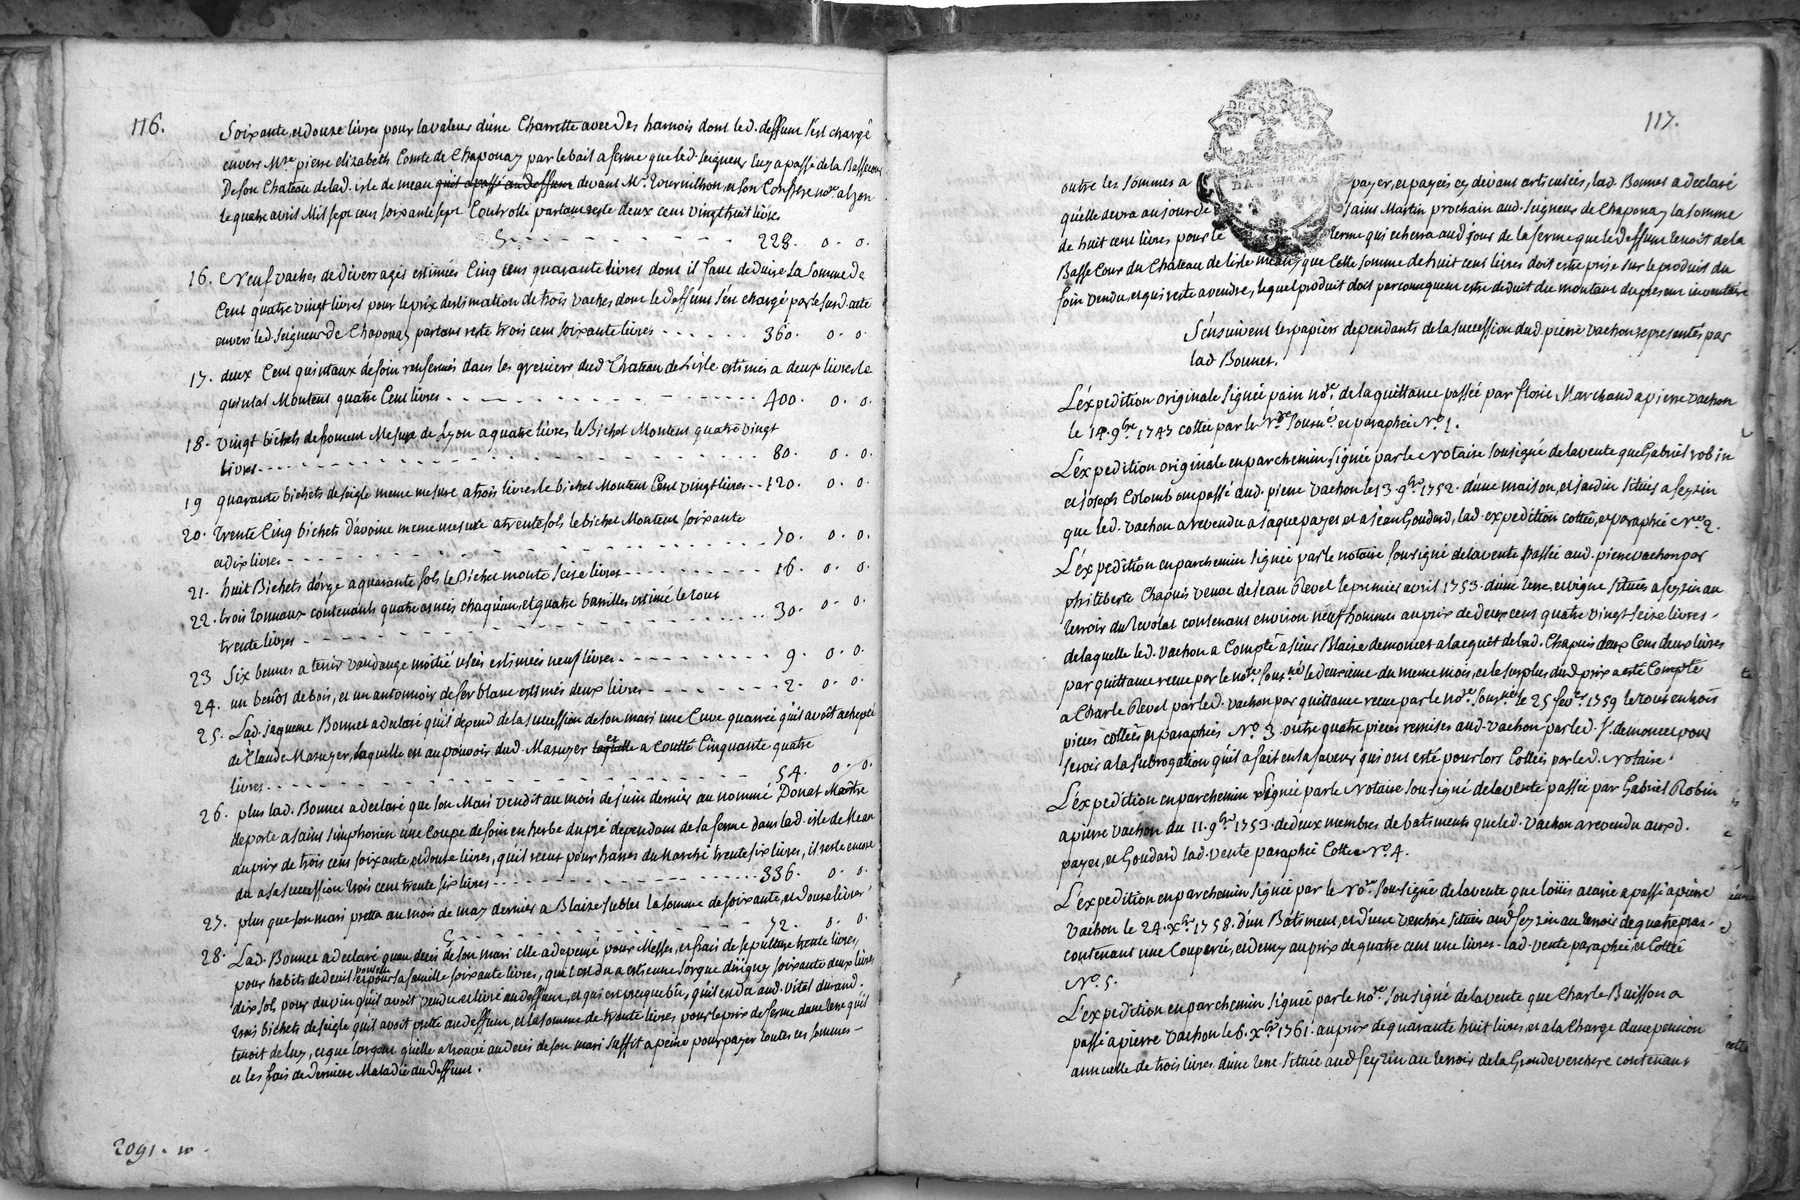 116.
Soixante, et douze livres pour la valeur d'une Charrette avec des harnois dont led. deffunt s'est chargé
envers Mre pierre elizabeth Comte de Chaponay par le bail a ferme que led. seigneur luy a passé de la Bassecour
De son Chateau de lad. isle de mean qu'il a passé au deffunt devant Me Tournilhon, et son Confrere nore a Lyon
le quatre avril Mil sept cent soixante sept Controllé partant reste deux cent vingt huit livres
228. 0. 0.
16. Neuf vaches de divers agés estimées Cinq cens quarante livres dont il faut deduire La Somme de
Cent quatre vingt livres pour le prix d'estimation de trois vaches dont le deffunt s'en chargé par le susd. acte
envers led. seigneur De Chaponay partant reste trois cent soixante livres 360. 0. 0.
17. deux Cent quintaux de foin renfermés dans les greniers dud Chateau de Lisle estimés a deux livres le
quintal Montent quatre Cent livres 400. 0. 0.
18. vingt bichets de froment Mesure de Lyon a quatre livres le Bichet Montent quatre vingt
livres 80. 0. 0.
19 quarante bichets de seigle meme mesure a trois livres le bichet Montent Cent vingt livres 120. 0. 0.
20. Trente Cinq bichets d'avoine meme mesure a trente sols le bichet Montent soixante
et dix livres 70. 0. 0.
21. huit Bichets d'orge a quarante sols le Bichet monte seise livres 16. 0. 0.
22. trois tonneaux contenants quatre asnées chaqu'un, et quatre barilles estimé le tout
trente livres 30. 0. 0.
23 Six bennes a tenir vandange moitié usées estimées neuf livres 9. 0. 0.
24. un benôt de bois, et un antonnoir de fer blanc estimés deux livres 2. 0. 0.
25. Lad. Jaquème Bonnet a declaré qu'il depend de la succession de son mari une Cuve quarrée qu'il avoit achepté
de Claude Mazuyer, laquelle est au pouvoir dud. Mazuyer laquelle et a coutté Cinquante quatre
livres 54. 0. 0.
26. plus lad. Bonnet a declaré que son Mari vendit au mois de juin dernier au nommé Donat Maitre
de poste a saint simphorien une Coupe de foin en herbe du pré dependant de la ferme dans lad. isle de Mean
au prix de trois cens soixante, et douse livres, qu'il recut pour harres du Marché trente six livres, il reste encore
du a sa succession trois cent trente six livres 336. 0. 0.
27. plus que son mari pretta au mois de may dernier a Blaize sublet la somme de soixante, et douse livres
72. 0. 0.
28. Lad. Bonnet a declaré qu'au decés de son mari elle a depensé pour Messes, et frais de sepulture trente livres,
pour habits de deuil pour elle et pour sa famille soixante livres, qu'il est du a estienne sorgue d'irigny soixante deux livres
dix sols pour du vin qu'il avoit vendu et livré au deffunt, et qui en presque bû, qu'il en du aud. vital durand.
trois bichets de seigle qu'il avoit pretté au deffunt, et la somme de trente livres, pour le prix de ferme d'une terre qu'il
tenoit de luy, et que l'argent qu'elle a trouvé au decés de son mari suffit a peine pour payer toutes ces sommes
et les frais de derniere Maladie du deffunt.
2091. w.
117.
outre les sommes a payer, et payées cy devant articulées, lad. Bonnet a declaré
qu'elle devra au jour de saint Martin prochain aud. seigneur de Chaponay la somme
de huit cent livres pour le terme qui echerra aud. jour de la ferme que led deffunt tenoit de la
Basse Cour du Chateau de lisle mean, que Cette somme de huit cent livres doit estre prise sur le produit du
foin vendu, et qui reste a vendre, lequel produit doit par consequent estre deduit du montant du present inventaire
S'ensuivent les papiers dependants de la succession dud. pierre vachon representés par
lad Bonnet.
L'expedition originale signée pain nore de la quittance passée par florie Marchand a pierre vachon
le 14. 9bre 1747 cottée par le Nore soussné et paraphée No 1.
L'expedition originale en parchemin signée par le Notaire soussigné de la vente que Gabriel robin
et Joseph Colomb ont passé aud. pierre vachon le 13. 9bre 1752. d'une maison, et jardin situés a seyzin
que led. vachon a revendu a Jaque payet et a Jean Goudard, lad. expedition cottée, et paraphée No 2.
L'expedition en parchemin signée par le notaire soussigné de la vente passée aud. pierre vachon par
philiberte Chapuis veuve de Jean Revel le premier avril 1753. d'une terre, et vigne situées a seyzin au
terroir du Revolat contenant environ neuf hommes au prix de deux cent quatre vingt seize livres
de laquelle led. vachon a Compté a sieur Blaise demoncet a l'acquit de lad. Chapuis deux Cent deux livres
par quittance recue par le nore soussné le deuxieme du meme mois, et le surplus dud. prix a esté Compté
a Charle Revel par led. vachon par quittance recue par le nore soussné le 25 fevr 1759 le tout en trois
pieces cottées et paraphées No 3. outre quatre pieces remises aud. vachon par led. sr demoncet pour
servir a la subrogation qu'il a fait en sa faveur qui ont esté pour lors Cottées par led. Notaire.
L'expedition en parchemin signée par le Notaire soussigné de la vente passée par Gabriel Robin
a pierre vachon du 11. 9bre 1753. de deux membres de batiments que led. vachon a revendu auxd.
payet, et Goudard lad. vente paraphée Cotte No 4.
L'expedition en parchemin signée par le nore soussigné de la vente que loüis acarie a passé a pierre
vachon le 24. xbre 1758. d'un Batiment, et d'une verchere situés aud seyzin au terroir de quatre pras
contenant une Couperée, et demy au prix de quatre cent une livres lad. vente paraphée et Cottée
No 5.
L'expedition en parchemin signée par le nore soussigné de la vente que Charle Buisson a
passé a pierre vachon le 6. xbre 1761. au prix de quarante huit livres, et a la Charge d'une pension
annuelle de trois livres, d'une terre située aud seyzin au terroir de la Grande verchere contenant